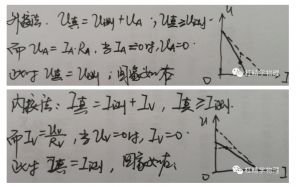 外接法: U真=U测+UA ; U真≥U测.
而 UA=IA·RA, 当IA=0时,UA=0.
此时 U真=U测, 图象如右
U
O
I
内接法: I真=I测+IV , I真≥I测.
而IV=UV/RV, 当UV=0时, IV=0.
此时 I真=I测, 图象如右
U
O
I